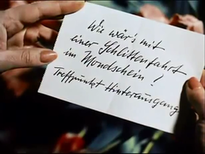 Wie wär's mit
einer Schlittenfahrt
im Mondschein!
Treffpunkt Hinterausgang